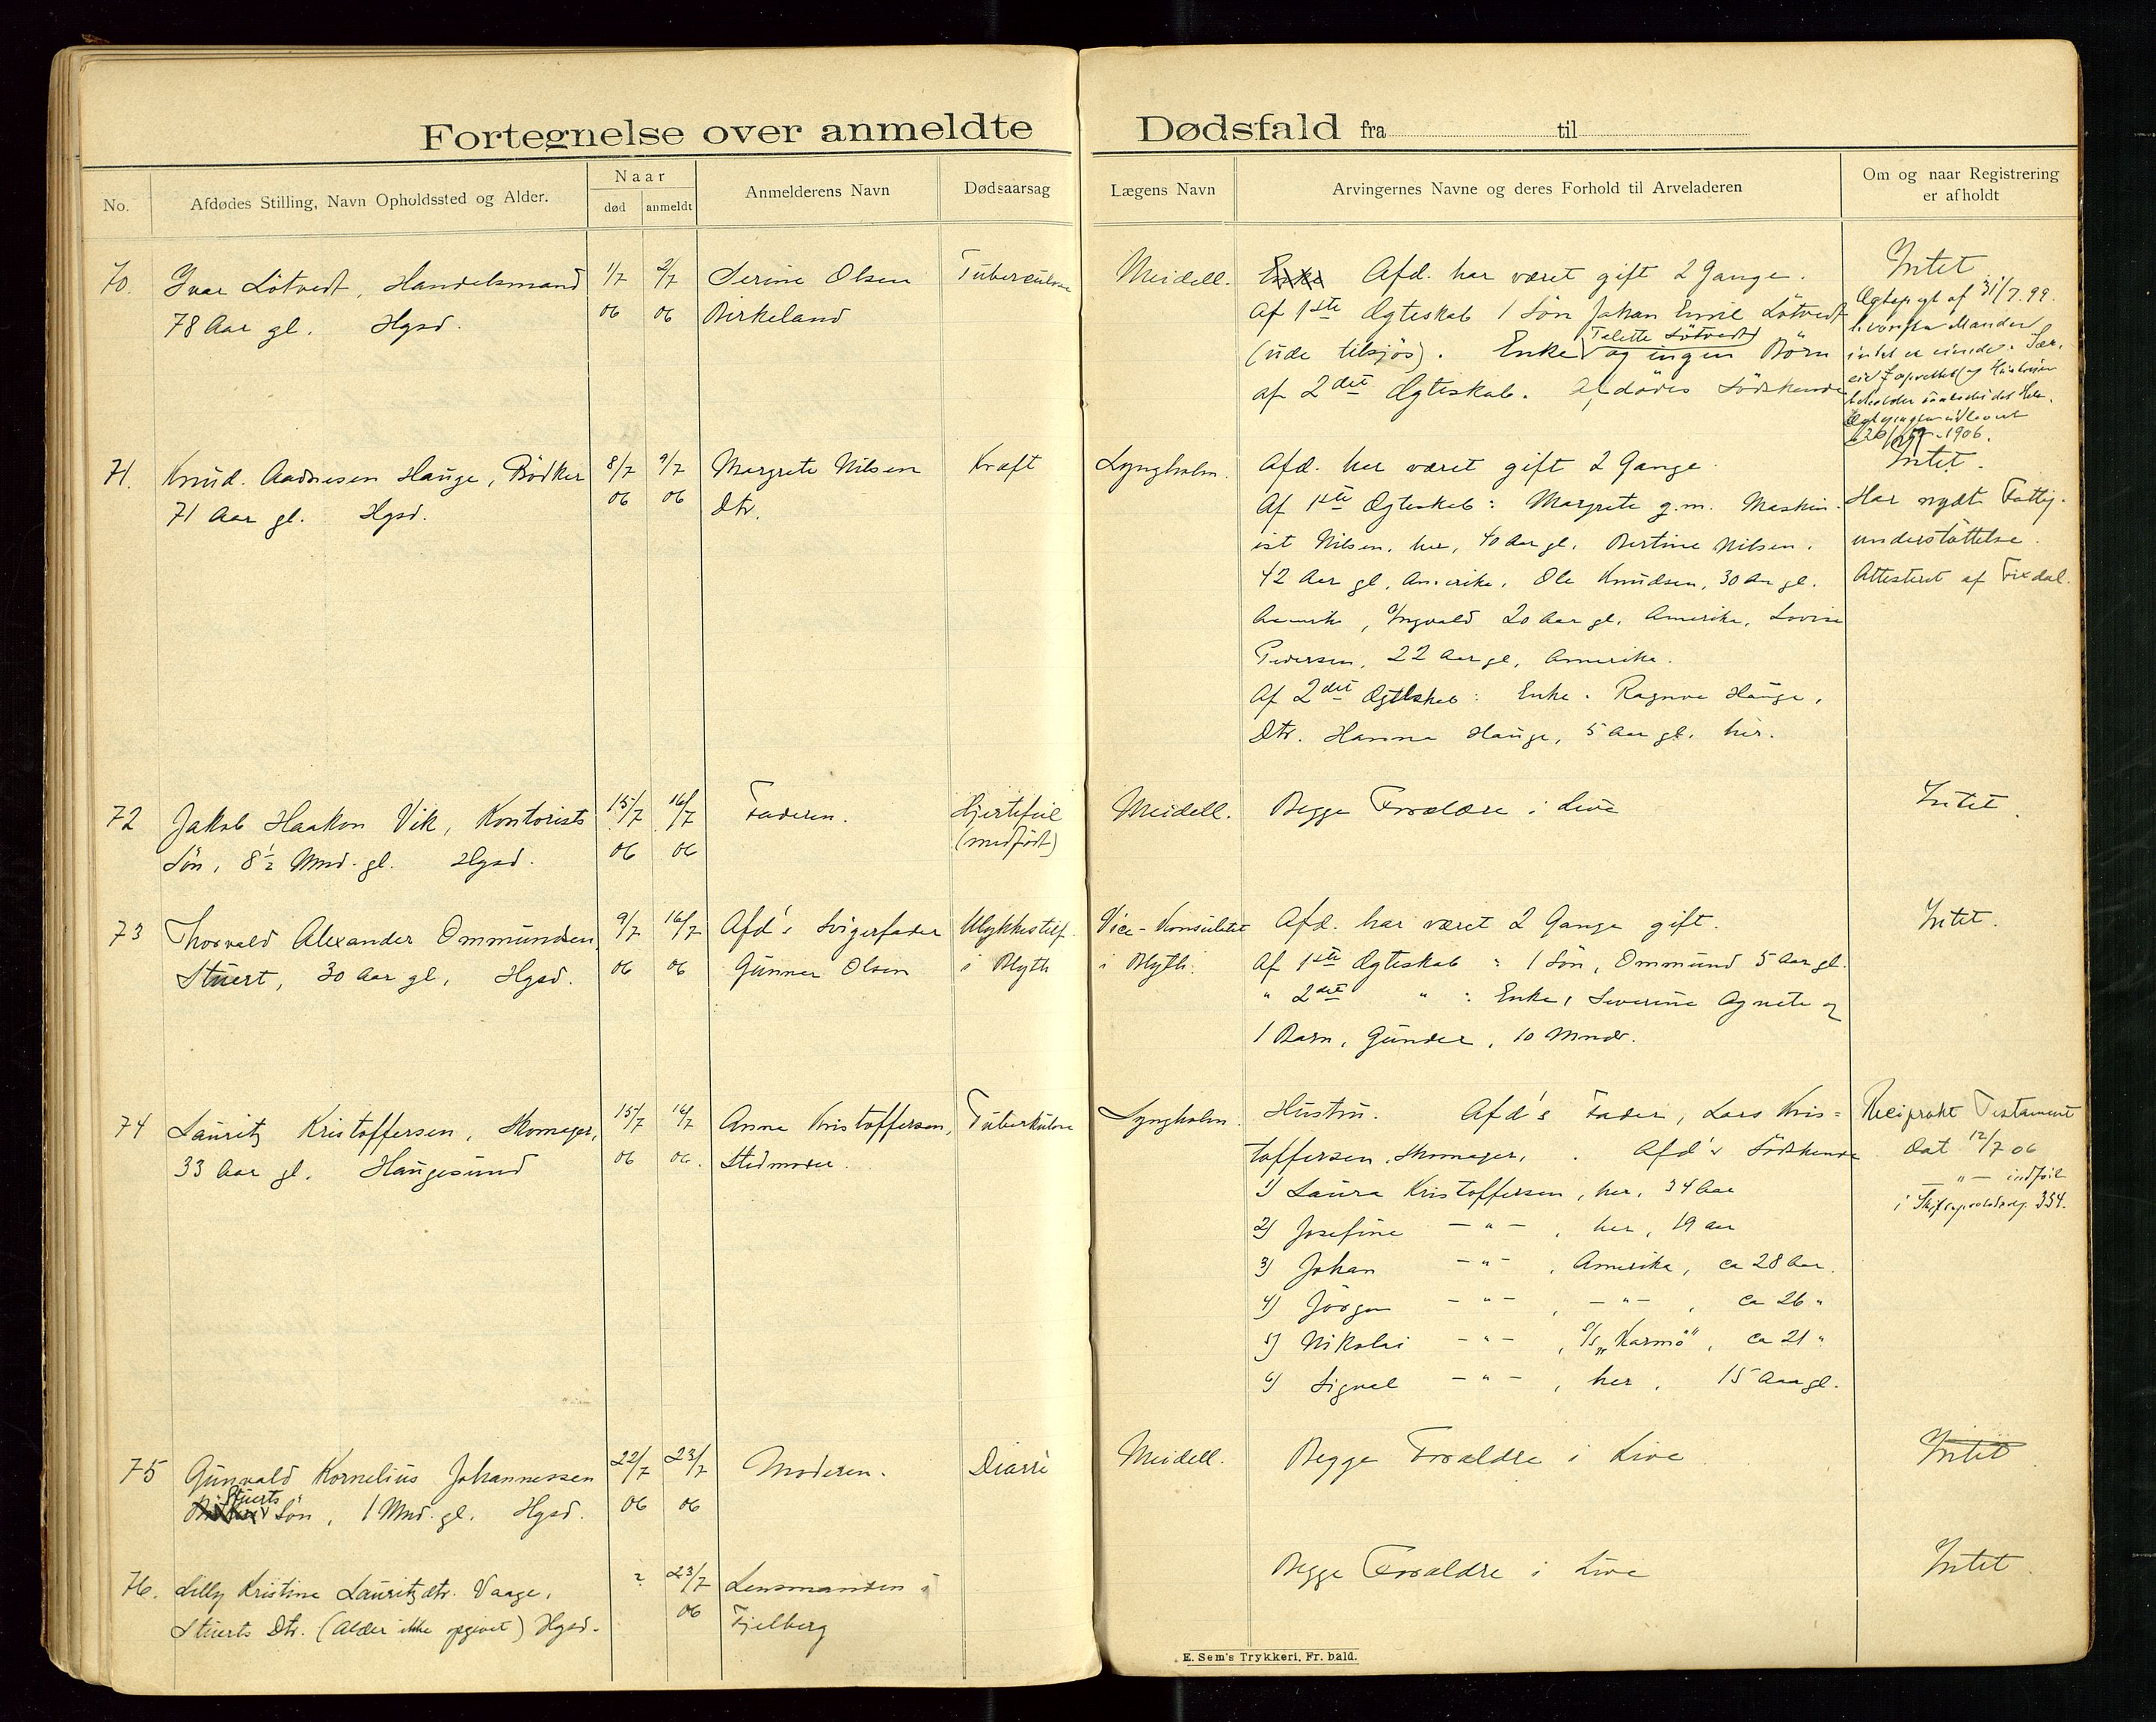 Fortegnelse over anmeldte Dødsfald fra til
No.
Afdødes Stilling, Navn Opholdssted og Alder.
Naar
død
anmeldt
Anmelderens Navn
Dødsaarsag
Lægens Navn
Arvingernes Navne og deres Forhold til Arveladeren
Om og naar Registrering
er afholdt
70.
Ivar Lötvedt, Handelsmand
78 Aar gl. Hgsd.
1/7
06
2/7
06
Serine Olsen
Birkeland
Tuberculose
Meidell.
Enke Afd. har været gift 2 Gange.
Af 1ste Ægteskab 1 Søn Johan Emil Lötvedt
(ude tilsjøs). Enke Telette Lötvedt og ingen Börn
af 2det Ægteskab. Afdödes Södskende
Intet
Ægtepgt af 31/7.99.
hvorefter Manden
intet er eiende. Sær-
1906.
71.
Knud. Aadnesen Hauge, Bödker
71 Aar gl. Hgsd.
8/7
06
9/7
06
Margrete Nilsen
Dtr.
Kræft
Lyngholm.
Afd. her været gift 2 Gange.
Af 1ste Ægteskab: Margrete g.m. Maskin-
ist Nilsen, her, 40 Aar gl. Bertine Nilsen,
42 Aar gl, Amerika, Ole Knudsen, 30 Aar gl.
Amerika, Ingvald 20 Aar gl. Amerika, Lovise
Pedersen, 22 Aar gl, Amerika.
Af 2det Ægteskab: Enke. Ragnva Hauge,
Dtr. Hanna Hauge, 5 Aar gl. her.
Intet.
Har nydt Fattig-
understöttelse.
Attesteret af Fixdal.
72
Jakob Haakon Vik, Kontorists
Sön, 8½ Mnd. gl. Hgsd.
15/7
06
16/7
06
Faderen.
Hjertefeil
(medfödt)
Meidell.
Begge Forældre i Live
Intet.
73
Thorvald Alexander Ommundsen
Stuert, 30 Aar gl, Hgsd.
9/7
06
16/7
06
Afd's Svigerfader
Gunner Olsen
Ulykkestilf.
i Blyth
Vice-Konsulatet
i Blyth.
Afd. har været 2 Gange gift.
Af 1ste Ægteskab: 1 Sön, Ommund 5 Aar gl.
" 2det " : Enke, Severine Agnete og
1 Barn, Gunder, 10 Mndr.
Intet.
74
Lauritz Kristoffersen, Skomager,
33 Aar gl. Haugesund
15/7
06
16/7
06.
Anna Kristoffersen,
Stedmoder.
Tuberkulose
Lyngholm.
Hustru. Afd's Fader, Lars Kris=
toffersen, Skomager, . Afd's Södskende
1) Laura Kristoffersen, her, 34 Aar
2) Josefine —"— , her, 19 aar
3) Johan —"— , Amerika, ca 28 Aar.
4) Jörgen —"— , —"— , ca 26 "
5) Nikolai —"— , S/S „Karmö", ca 21 "
6) Sigval —"— , her, 15 Aar gl.
Reciprokt Testament
dat 12/7 06
—"— indfört
354.
75
Gunvald Kornelius Johannessen
Stuerts
Sön, 1 Mnd. gl. Hgsd.
22/7
06
23/7
06
Moderen.
Diarré
Meidell.
Begge Forældre i Live
Intet
76.
Lilly Kristine Lauritzdtr. Vaage,
Stuerts Dtr. (Alder ikke opgivet) Hgsd.
?
23/7
06
Lensmanden i
Fjelberg
Begge Forældre i Live
Intet.
E. Sem's Trykkeri, Fr. hald.